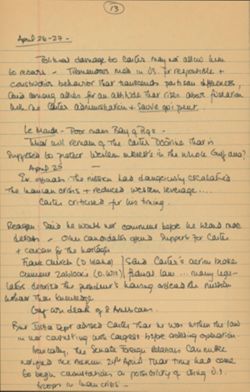 13
April 26-27 -
Political damage to Carter may not allow him
to recover - Tremendous need in US for responsible +
constructive behavior that transcends partisan differences.
Would among allies for an attitude that rises above frustration
with the Carter Administration +
Le Monde - Poor man's Bay of Pigs -
What will remain of the Carter Doctrine that is
supposed to protect Western interests in the whole Gulf area?
April 25
The mission has dangerously escalated
the Iranian crisis + reduced Western leverage...
Carter criticized for his timing.
Reagan said he would not comment before he heard more
details - Other candidates gave support for Carter
+ concern for the hostages
Frank Church (D Idaho) said Carter's action broke
Clement Zablocki (D. WI) federal law ... many legis-
lators decried the president's having ordered the mission
without their knowledge
Grief over death of 8 Americans
But Justice Dept advised Carter that he was within the law
in not consulting with Congress before ordering operation
Ironically, the Senate Foreign Relations Committee
notified the President 24th April that time had come
to begin consultation on possibility of using U.S.
troops in Iran crisis -